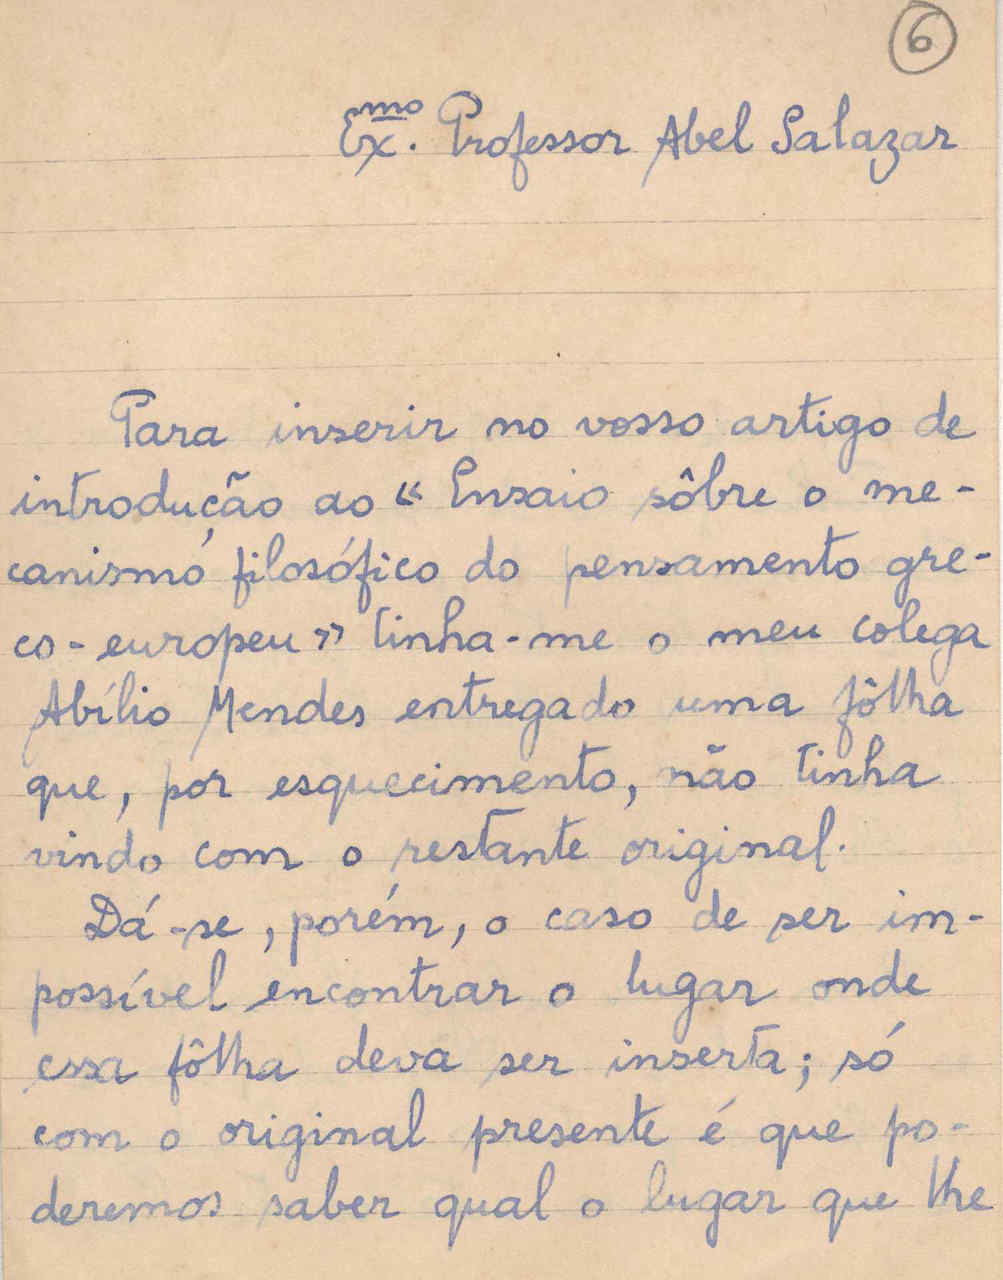 6
Ex.mo Professor Abel Salazar
Para inserir no vosso artigo de
introdução ao "Ensaio sôbre o me-
canismo filosófico do pensamento gre-
co-europeu" tinha-me o meu colega
Abílio Mendes entregado uma fôlha
que, por esquecimento, não tinha
vindo com o restante original.
Dá-se, porém, o caso de ser im-
possível encontrar o lugar onde
essa fôlha deva ser inserta; só
com o original presente é que po-
deremos saber qual o lugar que lhe